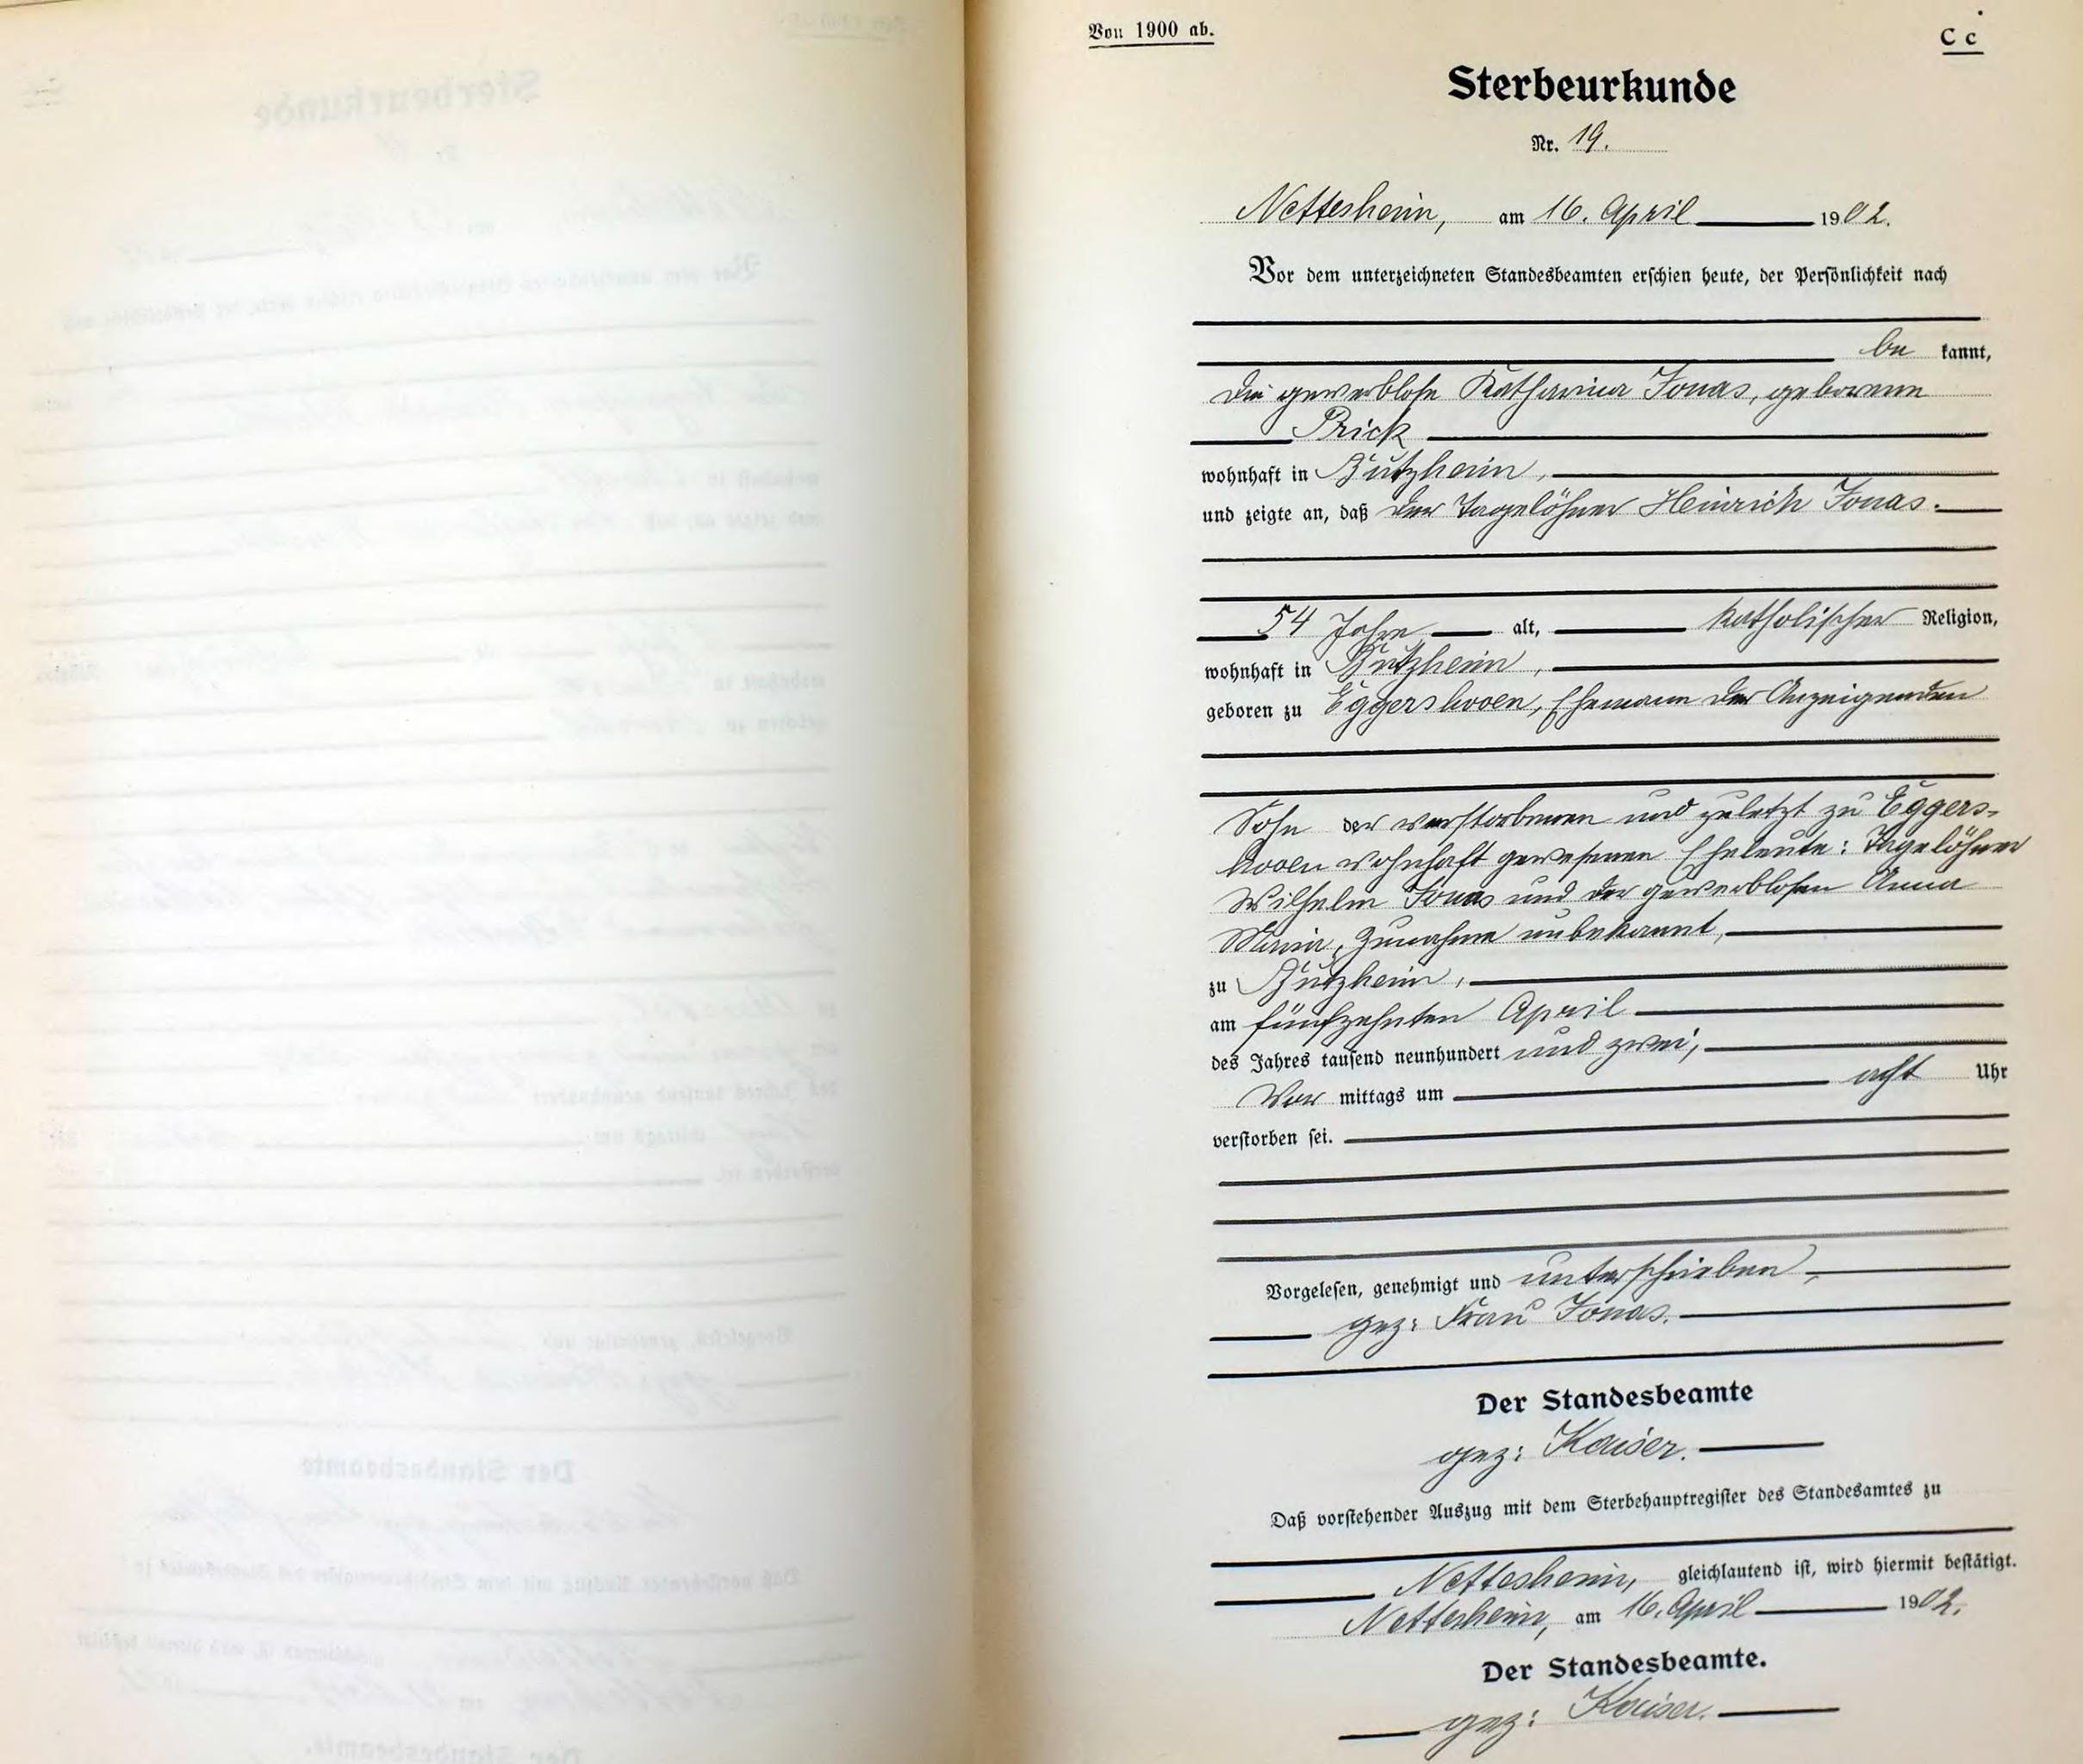 Von 1900 ab.
C c
Sterbeurkunde
Nr. 19.
Nettesheim, am 16. April 1902.
Vor dem unterzeichneten Standesbeamten erschien heute, der Persönlichkeit nach
be kannt,
die gewerblose Katharina Jonas, geborene
Prick
wohnhaft in Butzheim,
und zeigte an, daß der Tagelöhner Heinrich Jonas.
54 Jahre alt, katholischer Religion,
wohnhaft in Butzheim,
geboren zu Eggershoven, Ehemann der Anzeigenden
Sohn der verstorbenen und zuletzt zu Eggers-
hoven wohnhaft gewesenen Eheleute: Tagelöhner
Wilhelm Jonas und der gewerblosen Anna
Maria, Zuname unbekannt,
zu Butzheim,
am fünfzehnten April
des Jahres tausend neunhundert und zwei,
Vor mittags um acht Uhr
verstorben sei.
Vorgelesen, genehmigt und unterschrieben,
gez: Frau Jonas.
Der Standesbeamte
gez: Kaiser.
Daß vorstehender Auszug mit dem Sterbehauptregister des Standesamtes zu
Nettesheim, gleichlautend ist, wird hiermit bestätigt.
Nettesheim, am 16. April 1902.
Der Standesbeamte.
gez: Kaiser.